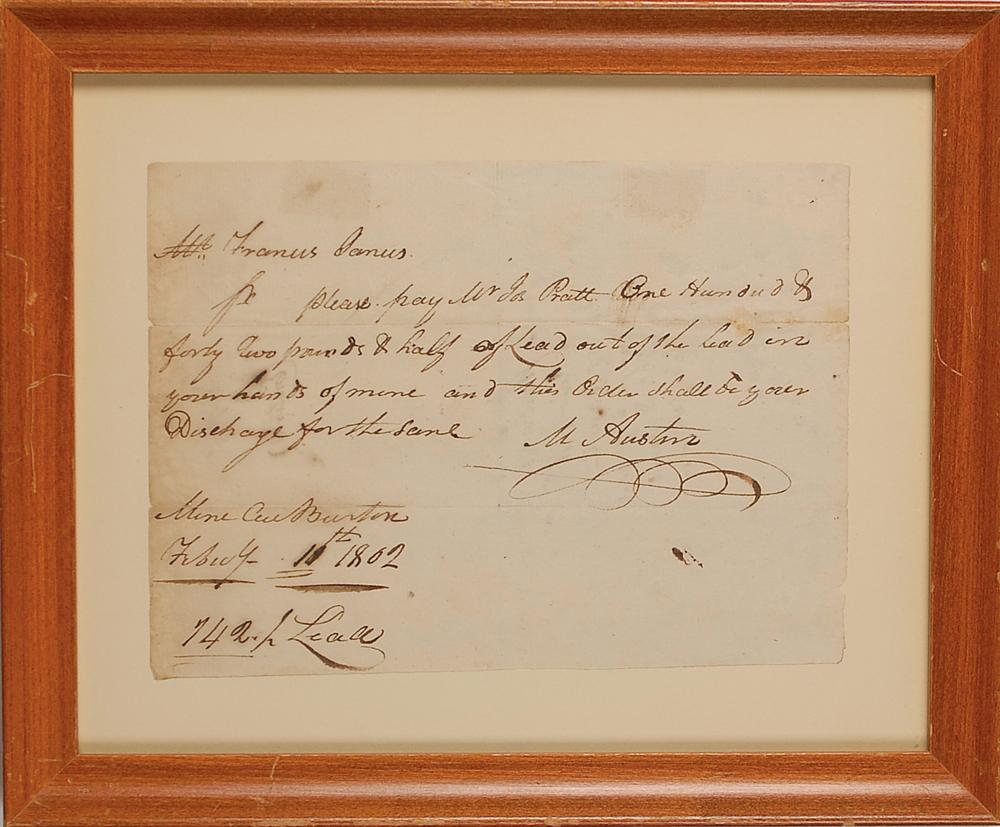 Mr. Francis Janis.
Sr please pay Mr Jos Pratt One Hundred &
forty two pounds & half of Lead out of the lead in
your hands of mine and this Order shall be your
Discharge for the Same M Austin
Mine Burton
Feby 11th 1802
142 ½ Lead